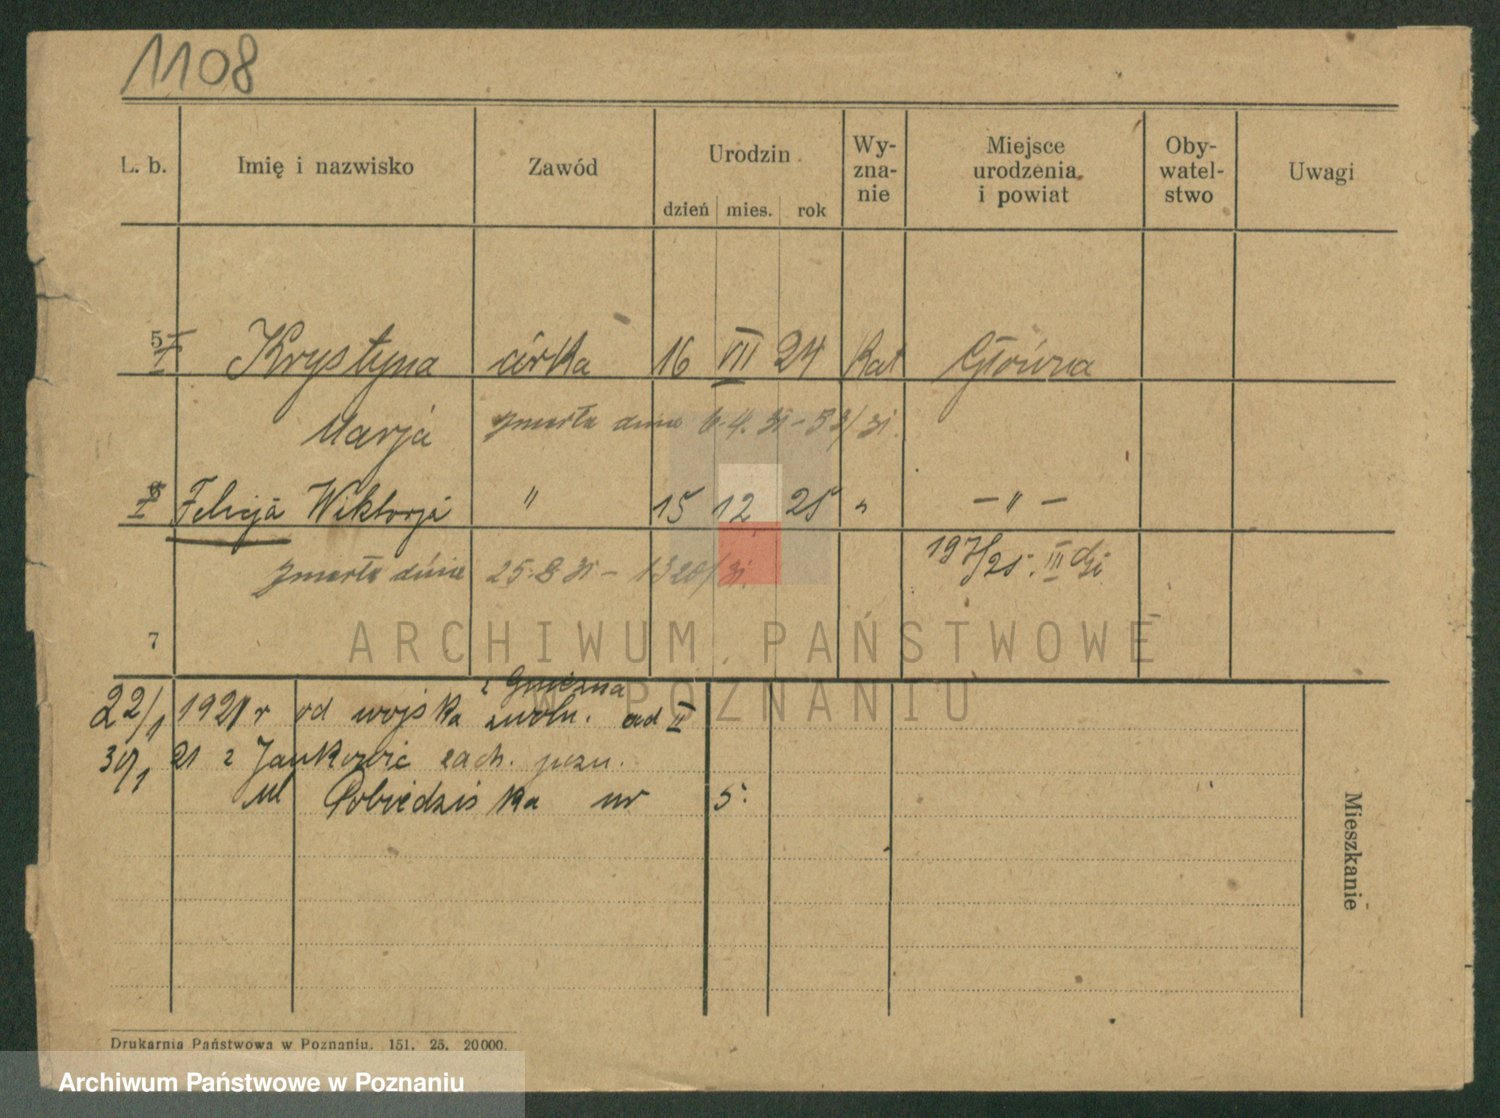 1108
L. b. Imię i nazwisko Zawód Urodzin Wy- Miejsce Oby- Uwagi
zna- urodzenia watel-
nie i powiat stwo
dzień mies. rok
5 Krystyna córka 16 VII 24 Kat Główna
Marja zmarła dnia 6.4.31 -
Felicja Wiktorja " 15 12 25 " - " -
zmarła dnia 25.8.31 - 1320/31. 197/25. III
7
ARCHIWUM PAŃSTWOWE
W POZNANIU
z Gniezna
22/1 1921 r od wojska zwoln. II
30/1 21 z Jankowic zach. pozn.
ul Pobiedziska nr 5.
Mieszkanie
Drukarnia Państwowa w Poznaniu. 151. 25. 20000.
Archiwum Państwowe w Poznaniu